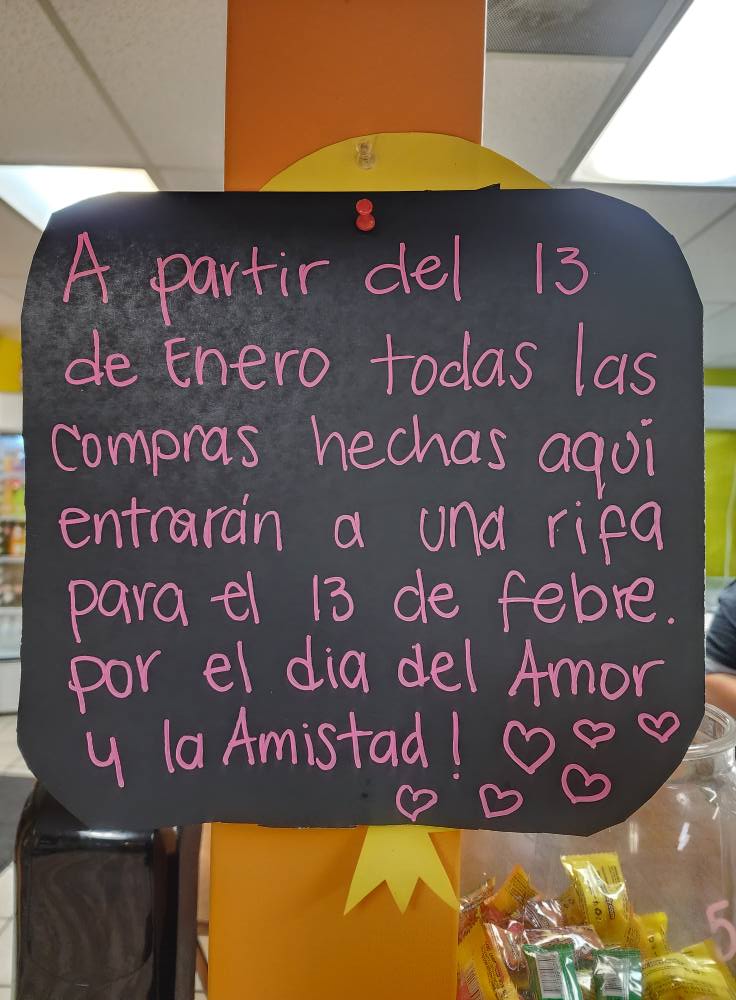 A partir del 13
de Enero todas las
compras hechas aqui
entrarán a una rifa
para el 13 de febre.
por el dia del Amor
y la Amistad!
5